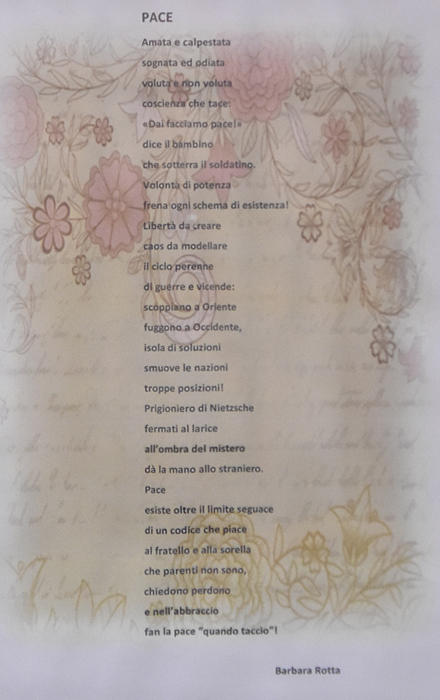 PACE
Amata e calpestata
sognata ed odiata
voluta e non voluta
coscienza che tace:
«Dai facciamo pace!»
dice il bambino
che sotterra il soldatino.
Volontà di potenza
frena ogni schema di esistenza!
Libertà da creare
caos da modellare
il ciclo perenne
di guerre e vicende:
scoppiano a Oriente
fuggono a Occidente,
isola di soluzioni
smuove le nazioni
troppe posizioni!
Prigioniero di Nietzsche
fermati al larice
all'ombra del mistero
dà la mano allo straniero.
Pace
esiste oltre il limite seguace
di un codice che piace
al fratello e alla sorella
che parenti non sono,
chiedono perdono
e nell'abbraccio
fan la pace "quando taccio"!
Barbara Rotta